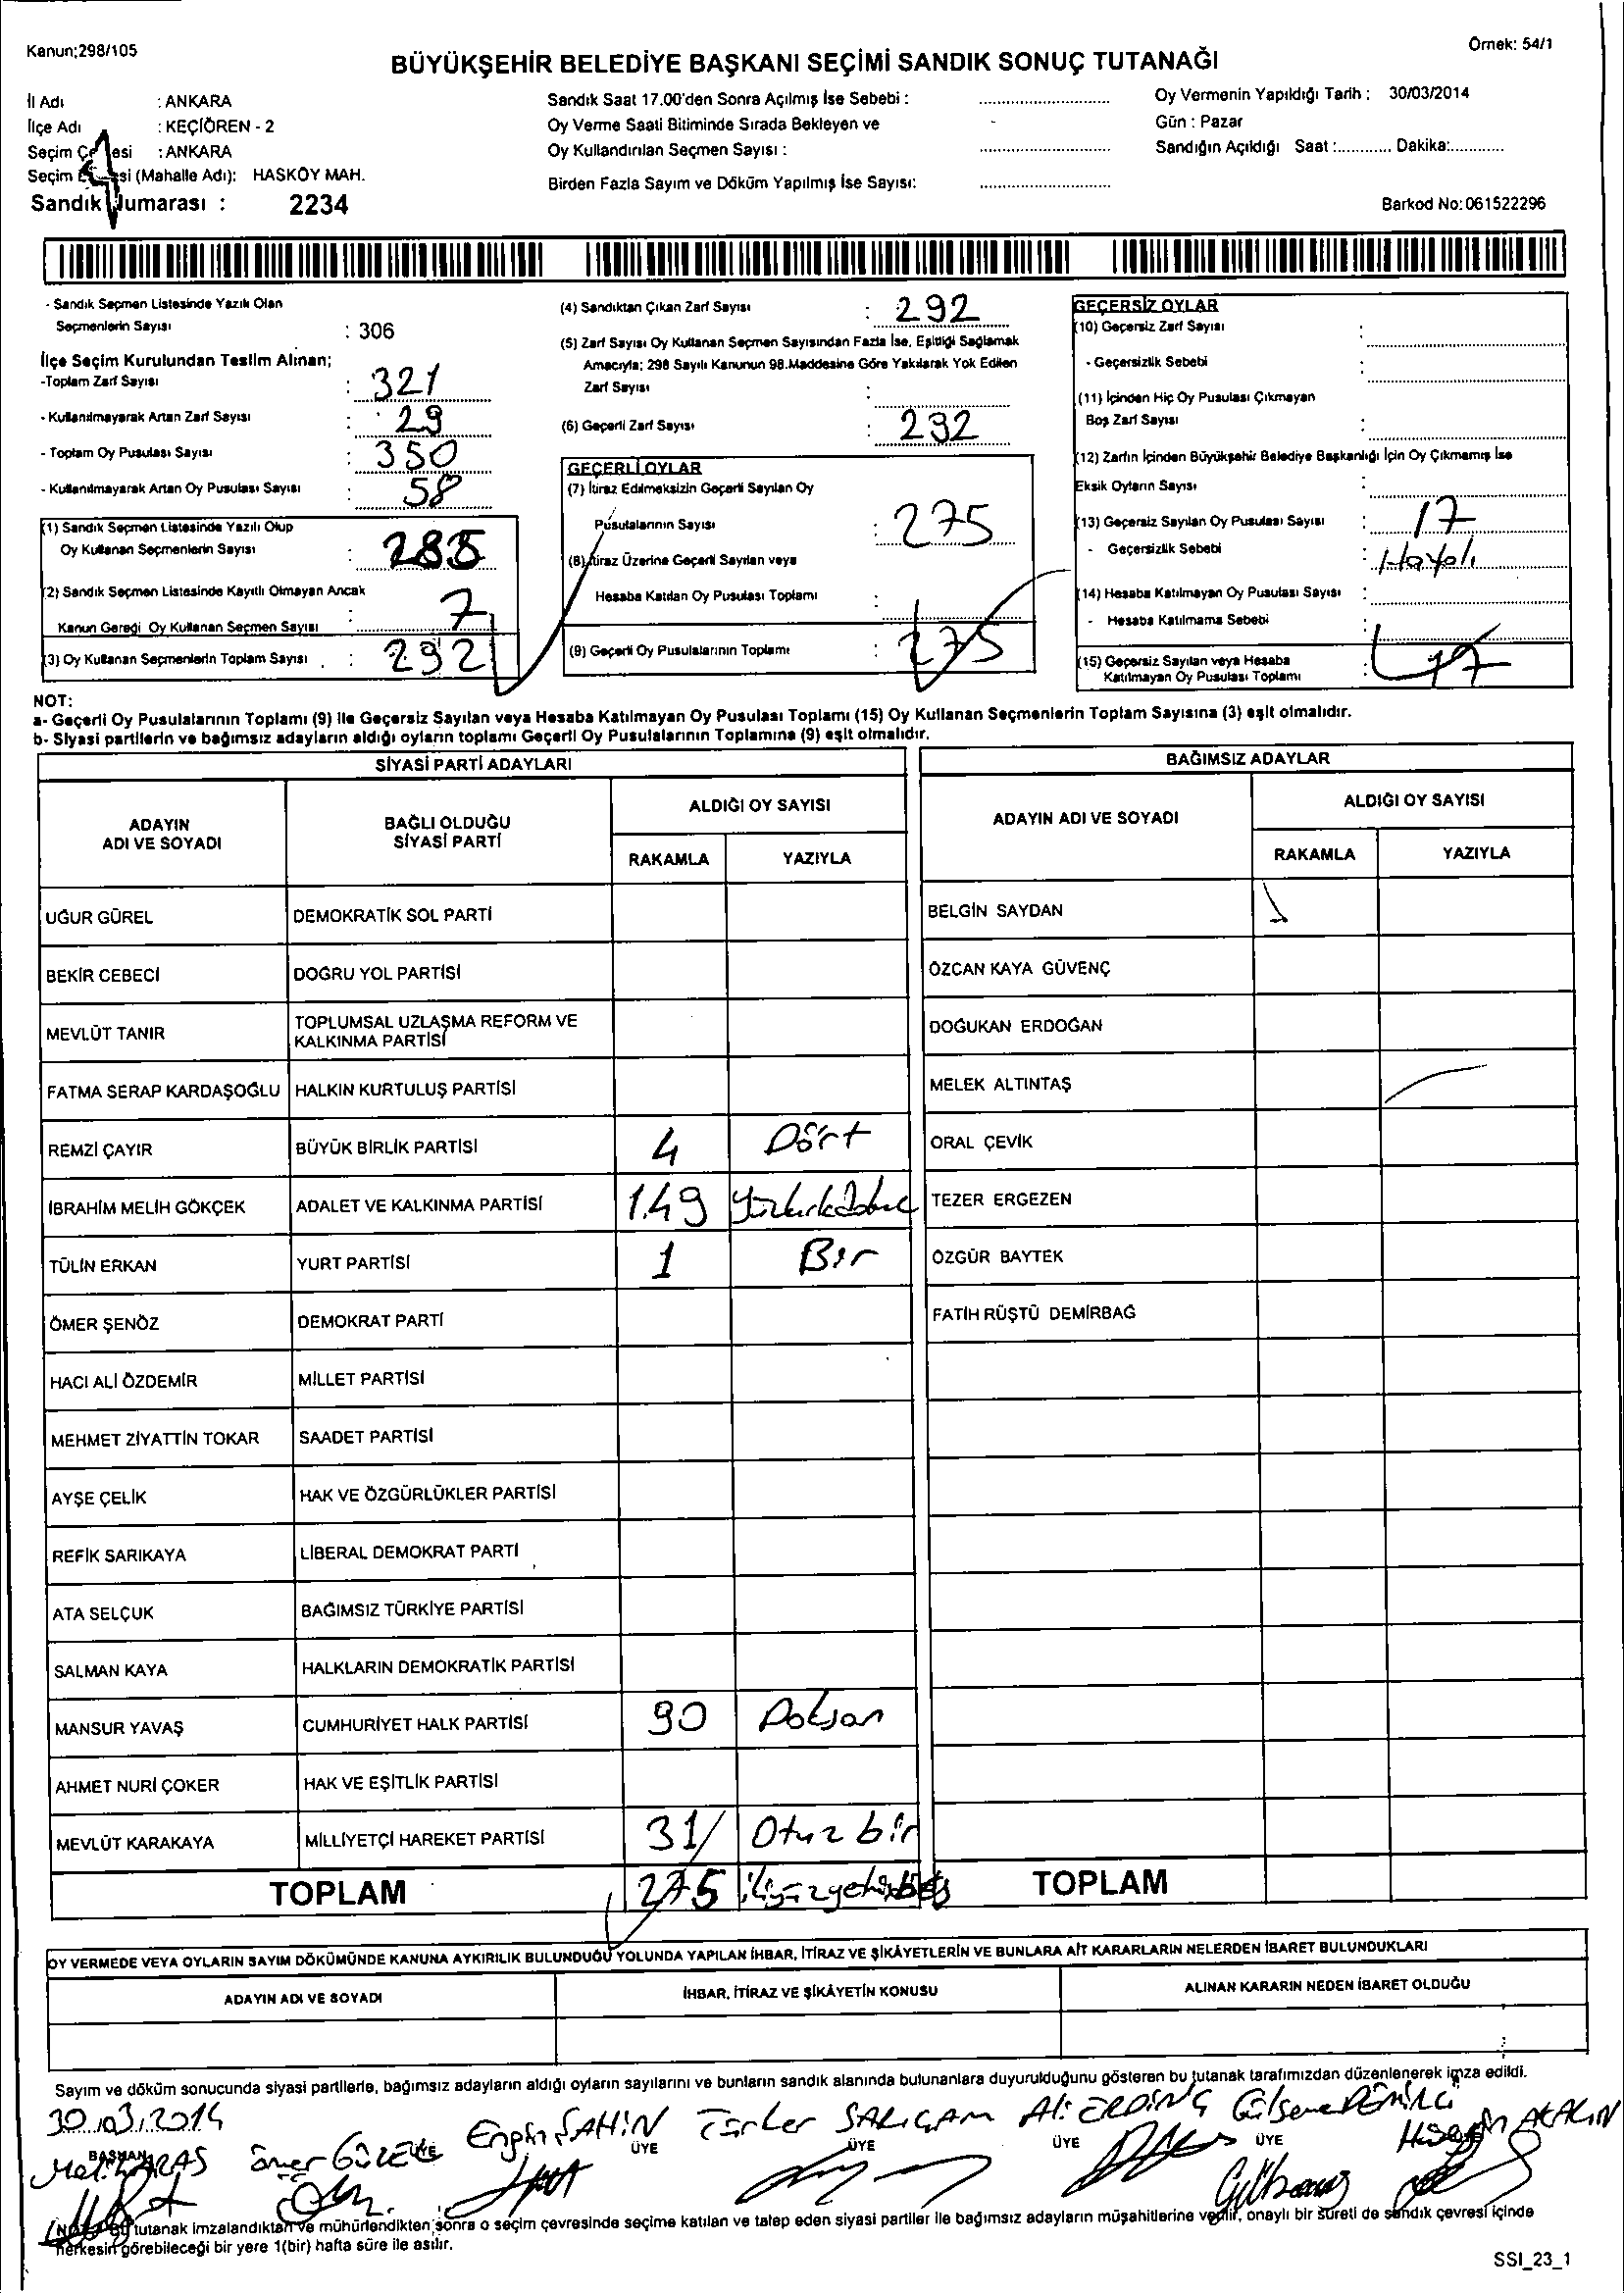 Kanun;298/105
Örnek: 54/1
BÜYÜKŞEHİR BELEDİYE BAŞKANI SEÇİMİ SANDIK SONUÇ TUTANAĞI
İl Adı : ANKARA
İlçe Adı : KEÇİÖREN - 2
Seçim esi : ANKARA
Seçim si (Mahalle Adı): HASKÖY MAH.
Sandık umarası : 2234
Sandık Saat 17.00'den Sonra Açılmış İse Sebebi :
Oy Verme Saati Bitiminde Sırada Bekleyen ve
Oy Kullandırılan Seçmen Sayısı :
Birden Fazla Sayım ve Döküm Yapılmış İse Sayısı:
Oy Vermenin Yapıldığı Tarih : 30/03/2014
Gün : Pazar
Sandığın Açıldığı Saat :............ Dakika:............
Barkod No:061522296
- Sandık Seçmen Listesinde Yazılı Olan
Seçmenlerin Sayısı : 306
İlçe Seçim Kurulundan Teslim Alınan;
-Toplam Zarf Sayısı : 321
- Kullanılmayarak Artan Zarf Sayısı : 29
- Toplam Oy Pusulası Sayısı : 350
- Kullanılmayarak Artan Oy Pusulası Sayısı : 58
(1) Sandık Seçmen Listesinde Yazılı Olup
Oy Kullanan Seçmenlerin Sayısı : 285
(2) Sandık Seçmen Listesinde Kayıtlı Olmayan Ancak
Kanun Gereği Oy Kullanan Seçmen Sayısı : 7
(3) Oy Kullanan Seçmenlerin Toplam Sayısı : 292
(4) Sandıktan Çıkan Zarf Sayısı : 292
(5) Zarf Sayısı Oy Kullanan Seçmen Sayısından Fazla İse, Eşitliği Sağlamak
Amacıyla; 298 Sayılı Kanunun 98.Maddesine Göre Yakılarak Yok Edilen
Zarf Sayısı :
(6) Geçerli Zarf Sayısı : 292
GEÇERLİ OYLAR
(7) İtiraz Edilmeksizin Geçerli Sayılan Oy
Pusulalarının Sayısı : 275
(8) İtiraz Üzerine Geçerli Sayılan veya
Hesaba Katılan Oy Pusulası Toplamı :
(9) Geçerli Oy Pusulalarının Toplamı : 275
GEÇERSİZ OYLAR
(10) Geçersiz Zarf Sayısı :
- Geçersizlik Sebebi :
(11) İçinden Hiç Oy Pusulası Çıkmayan
Boş Zarf Sayısı :
(12) Zarfın İçinden Büyükşehir Belediye Başkanlığı İçin Oy Çıkmamış İse
Eksik Oyların Sayısı :
(13) Geçersiz Sayılan Oy Pusulası Sayısı : 17
- Geçersizlik Sebebi : Hatalı
(14) Hesaba Katılmayan Oy Pusulası Sayısı :
- Hesaba Katılmama Sebebi :
(15) Geçersiz Sayılan veya Hesaba
Katılmayan Oy Pusulası Toplamı : 17
NOT:
a- Geçerli Oy Pusulalarının Toplamı (9) ile Geçersiz Sayılan veya Hesaba Katılmayan Oy Pusulası Toplamı (15) Oy Kullanan Seçmenlerin Toplam Sayısına (3) eşit olmalıdır.
b- Siyasi partilerin ve bağımsız adayların aldığı oyların toplamı Geçerli Oy Pusulalarının Toplamına (9) eşit olmalıdır.
SİYASİ PARTİ ADAYLARI
ADAYIN ADI VE SOYADI
BAĞLI OLDUĞU SİYASİ PARTİ
ALDIĞI OY SAYISI
RAKAMLA YAZIYLA
UĞUR GÜREL DEMOKRATİK SOL PARTİ
BEKİR CEBECİ DOĞRU YOL PARTİSİ
MEVLÜT TANIR TOPLUMSAL UZLAŞMA REFORM VE KALKINMA PARTİSİ
FATMA SERAP KARDAŞOĞLU HALKIN KURTULUŞ PARTİSİ
REMZİ ÇAYIR BÜYÜK BİRLİK PARTİSİ 4 Dört
İBRAHİM MELİH GÖKÇEK ADALET VE KALKINMA PARTİSİ 149 yüzkırkdokuz
TÜLİN ERKAN YURT PARTİSİ 1 Bir
ÖMER ŞENÖZ DEMOKRAT PARTİ
HACI ALİ ÖZDEMİR MİLLET PARTİSİ
MEHMET ZİYATTİN TOKAR SAADET PARTİSİ
AYŞE ÇELİK HAK VE ÖZGÜRLÜKLER PARTİSİ
REFİK SARIKAYA LİBERAL DEMOKRAT PARTİ
ATA SELÇUK BAĞIMSIZ TÜRKİYE PARTİSİ
SALMAN KAYA HALKLARIN DEMOKRATİK PARTİSİ
MANSUR YAVAŞ CUMHURİYET HALK PARTİSİ 90 Doksan
AHMET NURİ ÇOKER HAK VE EŞİTLİK PARTİSİ
MEVLÜT KARAKAYA MİLLİYETÇİ HAREKET PARTİSİ 31 Otuz bir
TOPLAM 275 ikiyüzyetmişbeş
BAĞIMSIZ ADAYLAR
ADAYIN ADI VE SOYADI
ALDIĞI OY SAYISI
RAKAMLA YAZIYLA
BELGİN SAYDAN
ÖZCAN KAYA GÜVENÇ
DOĞUKAN ERDOĞAN
MELEK ALTINTAŞ
ORAL ÇEVİK
TEZER ERGEZEN
ÖZGÜR BAYTEK
FATİH RÜŞTÜ DEMİRBAĞ
TOPLAM
OY VERMEDE VEYA OYLARIN SAYIM DÖKÜMÜNDE KANUNA AYKIRILIK BULUNDUĞU YOLUNDA YAPILAN İHBAR, İTİRAZ VE ŞİKÂYETLERİN VE BUNLARA AİT KARARLARIN NELERDEN İBARET BULUNDUKLARI
ADAYIN ADI VE SOYADI İHBAR, İTİRAZ VE ŞİKÂYETİN KONUSU ALINAN KARARIN NEDEN İBARET OLDUĞU
Sayım ve döküm sonucunda siyasi partilerle, bağımsız adayların aldığı oyların sayılarını ve bunların sandık alanında bulunanlara duyurulduğunu gösteren bu tutanak tarafımızdan düzenlenerek imza edildi.
30.03.2014
Engin ŞAHİN Türker SARIÇAM Ali ERDİNÇ Gülsene DEMİRCİ Hüseyin AKALIN
BAŞKAN ÜYE ÜYE ÜYE ÜYE ÜYE
ARAS Ömer GÜZEL
(NOT: Bu tutanak imzalandıktan ve mühürlendikten sonra o seçim çevresinde seçime katılan ve talep eden siyasi partiler ile bağımsız adayların müşahitlerine verilir, onaylı bir sureti de sandık çevresi içinde
herkesin görebileceği bir yere 1(bir) hafta süre ile asılır.
SSI_23_1